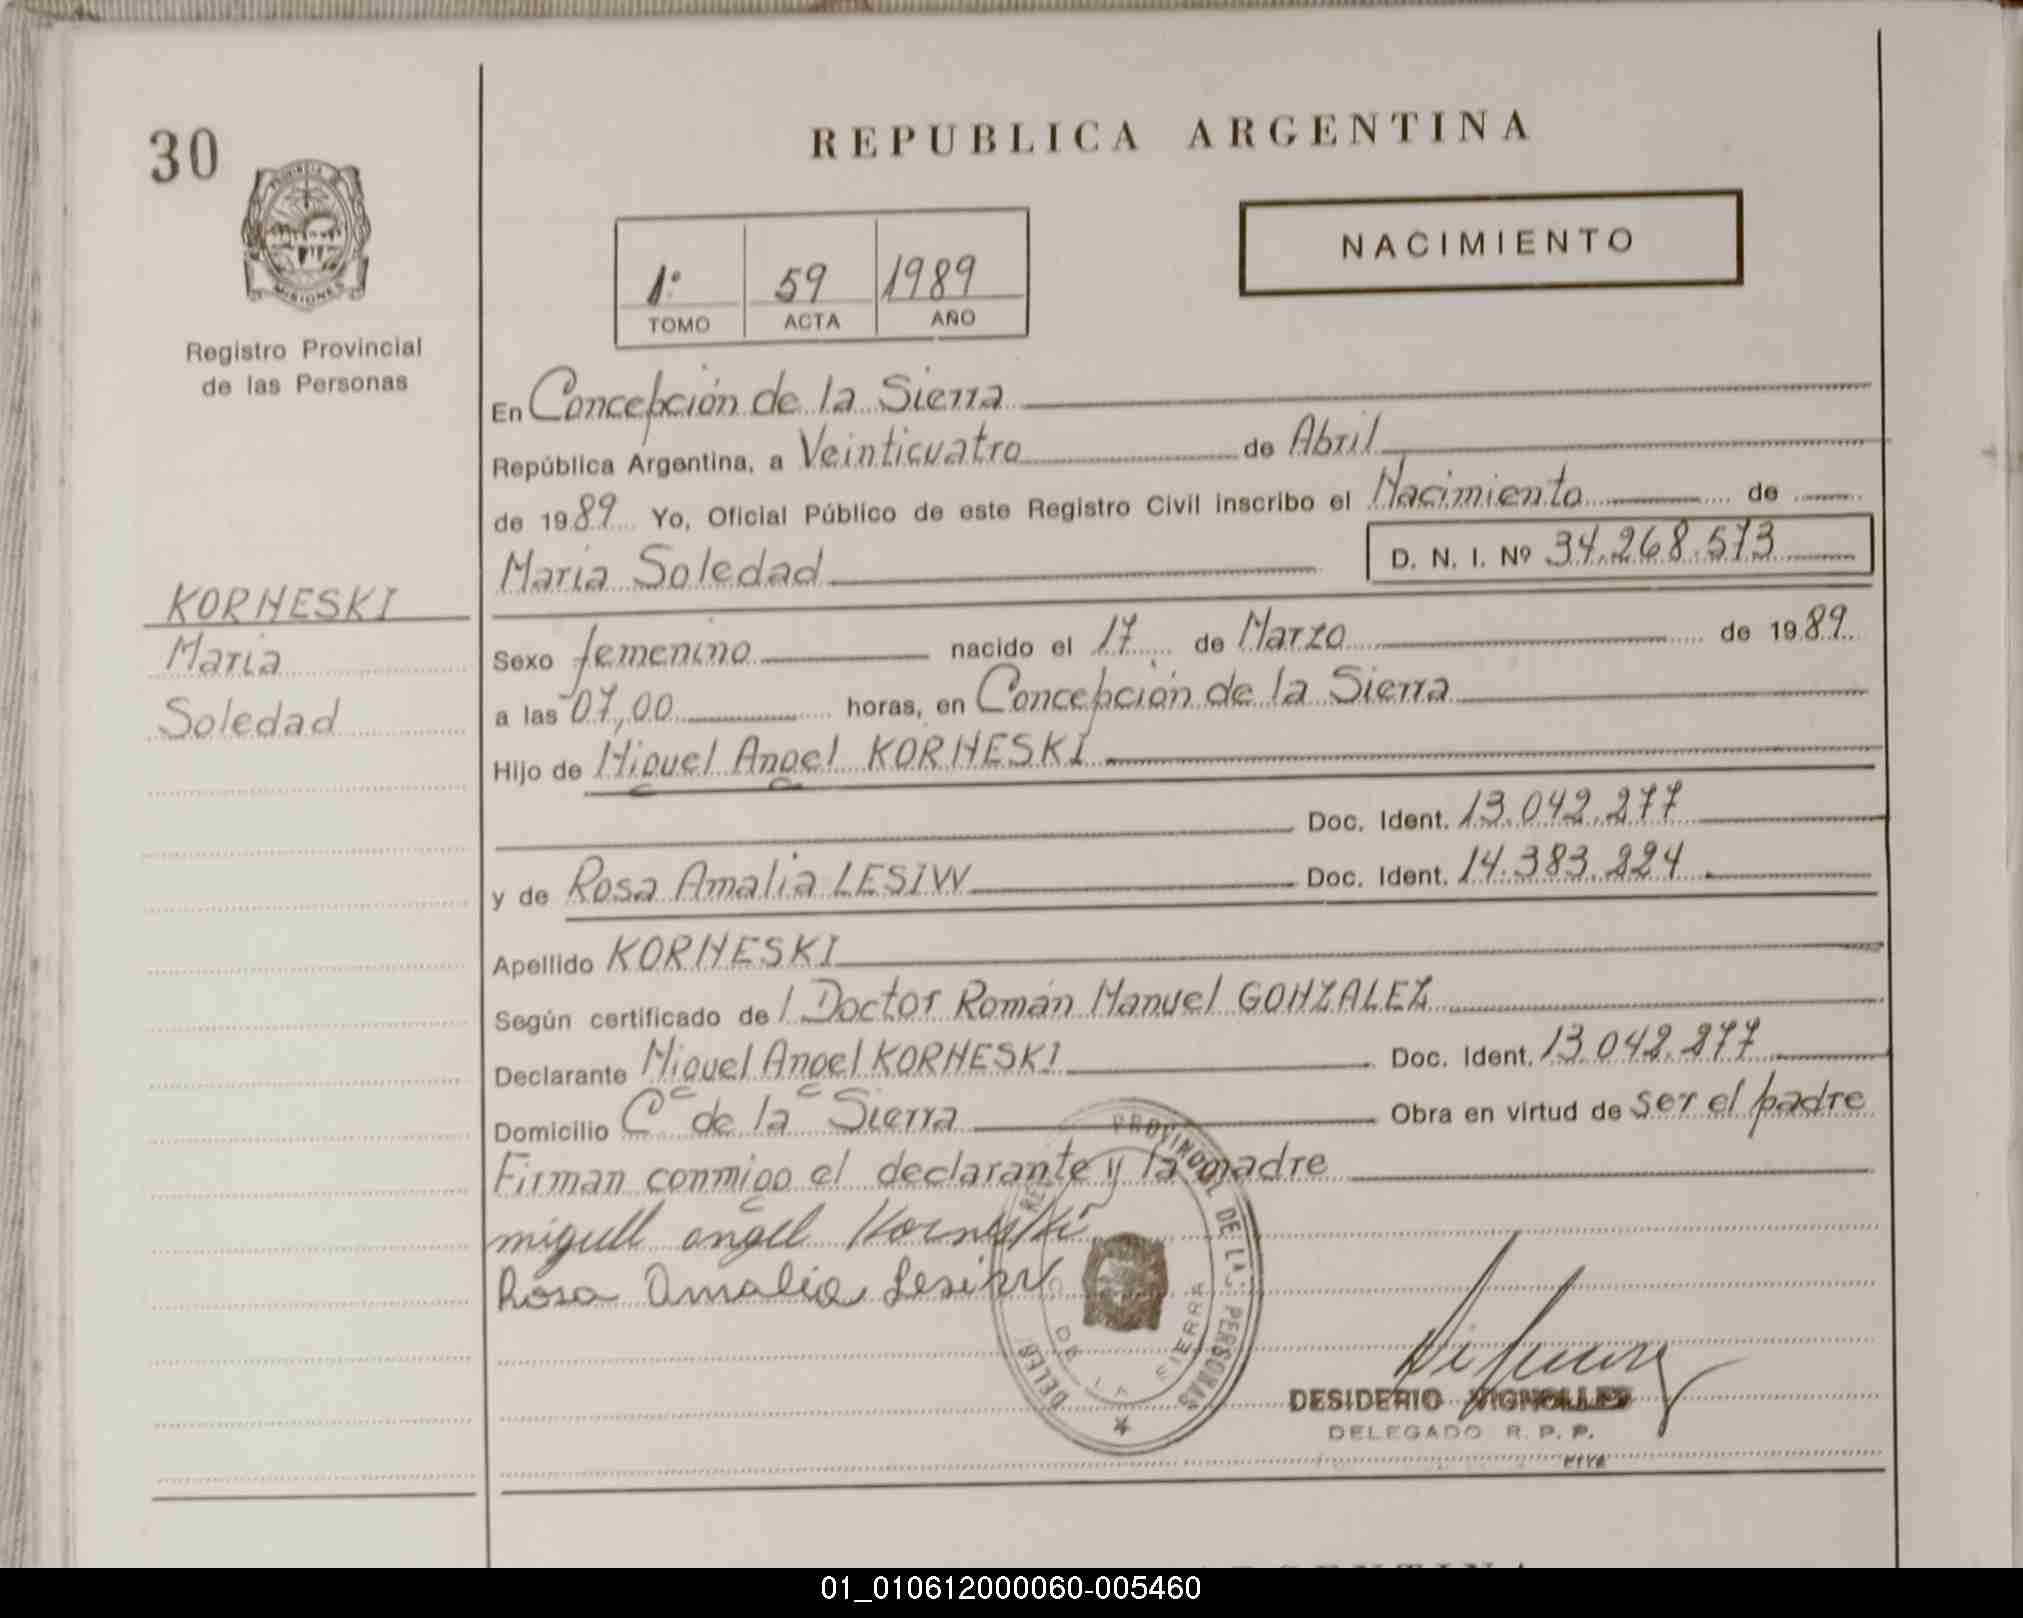 30
REPUBLICA ARGENTINA
MISIONES
Registro Provincial
de las Personas
1º 59 1989
TOMO ACTA AÑO
NACIMIENTO
En Concepción de la Sierra
República Argentina, a Veinticuatro de Abril
de 1989 Yo, Oficial Público de este Registro Civil inscribo el Nacimiento de
Maria Soledad D. N. I. Nº 34.268.573
KORNESKI
Maria
Soledad
Sexo femenino nacido el 17 de Marzo de 1989
a las 07,00 horas, en Concepción de la Sierra
Hijo de Miguel Angel KORNESKI
Doc. Ident. 13.042.277
y de Rosa Amalia LESIW Doc. Ident. 14.383.224
Apellido KORNESKI
Según certificado del Doctor Román Manuel GONZALEZ
Declarante Miguel Angel KORNESKI Doc. Ident. 13.042.277
Domicilio C de la Sierra Obra en virtud de ser el padre
Firman conmigo el declarante y la madre
miguel angel Korneski
Rosa Amalia Lesiw
PROVINCIAL DE LAS PERSONAS
DE LA SIERRA
DESIDERIO VIGNOLLES
DELEGADO R. P. P.
ARGENTINA
01_010612000060-005460